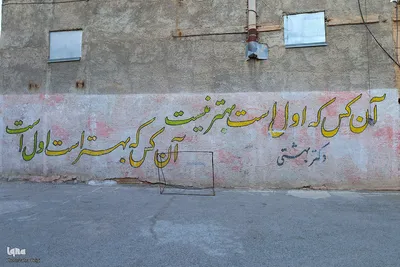 آن کس که اول است بهتر نیست
آن کس که بهتر است اول است
دکتر بهشتی
iqna